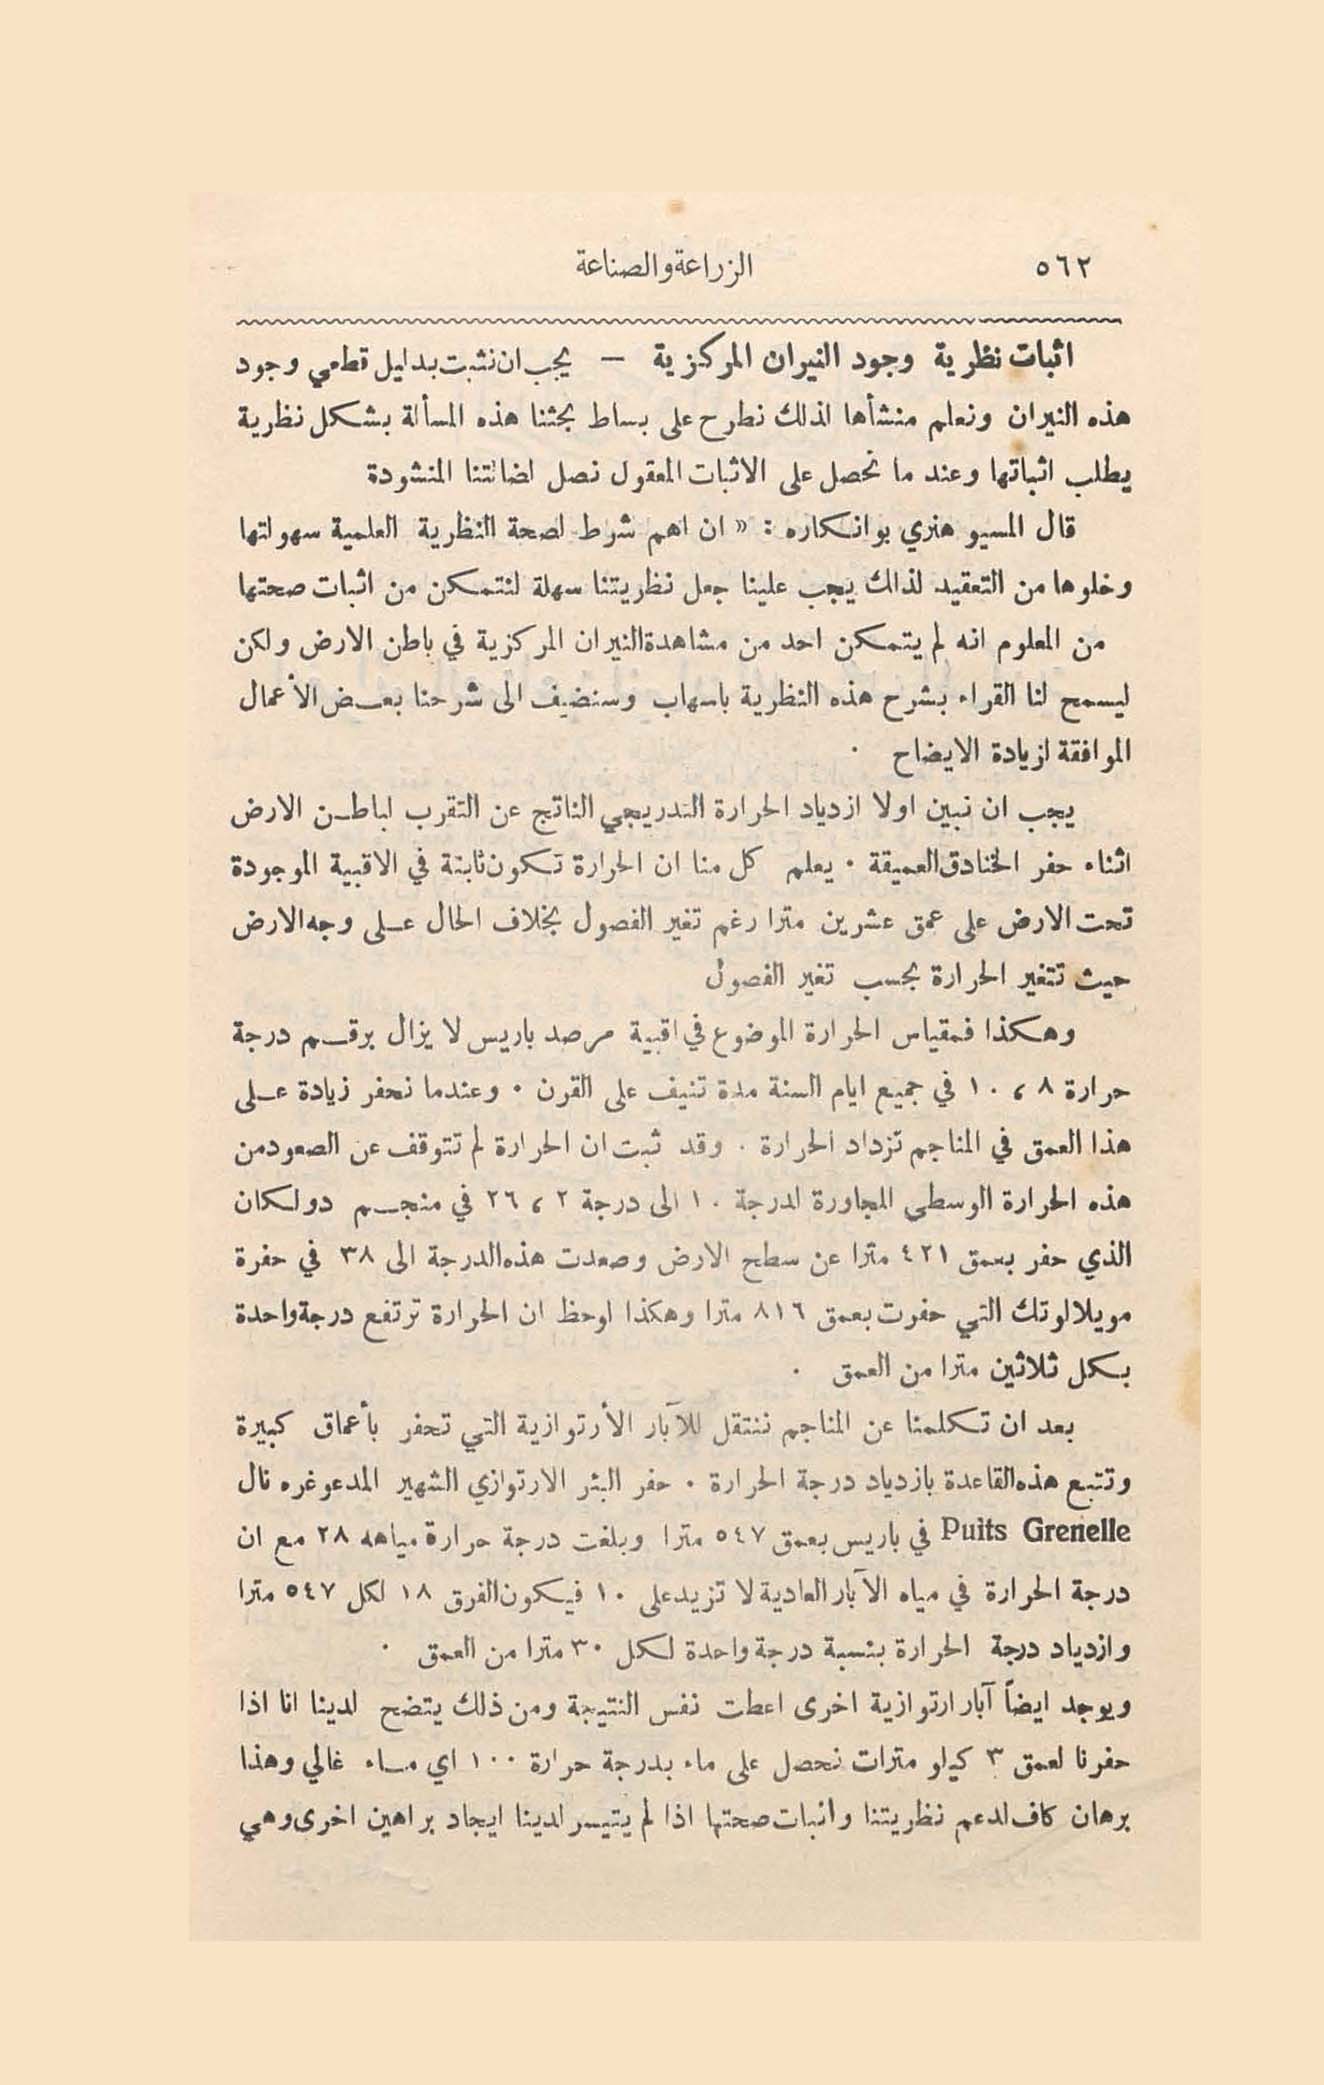 ٥٦٢
الزراعة والصناعة
اثبات نظرية وجود النيران المركزية — يجب ان نثبت بدليل قطعي وجود
هذه النيران ونعلم منشأها لذلك نطرح على بساط بحثنا هذه المسألة بشكل نظرية
يطلب اثباتها وعند ما نحصل على الاثبات المعقول نصل لضالتنا المنشودة
قال المسيو هنري بوانكاره : « ان اهم شرط لصحة النظرية العلمية سهولتها
وخلوها من التعقيد لذلك يجب علينا جعل نظريتنا سهلة لنتمكن من اثبات صحتها
من المعلوم انه لم يتمكن احد من مشاهدة النيران المركزية في باطن الارض ولكن
ليسمح لنا القراء بشرح هذه النظرية باسهاب وسنضيف الى شرحنا بعض الأعمال
الموافقة لزيادة الايضاح .
يجب ان نبين اولا ازدياد الحرارة التدريجي الناتج عن التقرب لباطن الارض
اثناء حفر الخنادق العميقة . يعلم كل منا ان الحرارة تكون ثابتة في الاقبية الموجودة
تحت الارض على عمق عشرين مترا رغم تغير الفصول بخلاف الحال على وجه الارض
حيث تتغير الحرارة بحسب تغير الفصول
وهكذا فمقياس الحرارة الموضوع في اقبية مرصد باريس لا يزال برقم درجة
حرارة ٨ ، ١٠ في جميع ايام السنة مدة تنيف على القرن . وعندما نحفر زيادة على
هذا العمق في المناجم تزداد الحرارة . وقد ثبت ان الحرارة لم تتوقف عن الصعود من
هذه الحرارة الوسطى المجاورة لدرجة ١٠ الى درجة ٢ ، ٢٦ في منجم دولكان
الذي حفر بعمق ٤٢١ مترا عن سطح الارض وصعدت هذه الدرجة الى ٣٨ في حفرة
مويلالوتك التي حفوت بعمق ٨١٦ مترا وهكذا لوحظ ان الحرارة ترتفع درجة واحدة
بكل ثلاثين مترا من العمق .
بعد ان تكلمنا عن المناجم ننتقل للآبار الأرتوازية التي تحفر بأعماق كبيرة
وتتبع هذه القاعدة بازدياد درجة الحرارة . حفر البئر الارتوازي الشهير المدعو غره نال
Puits Grenelle في باريس بعمق ٥٤٧ مترا وبلغت درجة حرارة مياهه ٢٨ مع ان
درجة الحرارة في مياه الآبار العادية لا تزيد على ١٠ فيكون الفرق ١٨ لكل ٥٤٧ مترا
وازدياد درجة الحرارة بنسبة درجة واحدة لكل ٣٠ مترا من العمق .
ويوجد ايضاً آبار ارتوازية اخرى اعطت نفس النتيجة ومن ذلك يتضح لدينا انا اذا
حفرنا لعمق ٣ كيلو مترات نحصل على ماء بدرجة حرارة ١٠٠ اي مـاء غالي وهذا
برهان كاف لدعم نظريتنا واثبات صحتها اذا لم يتيسر لدينا ايجاد براهين اخرى وهي